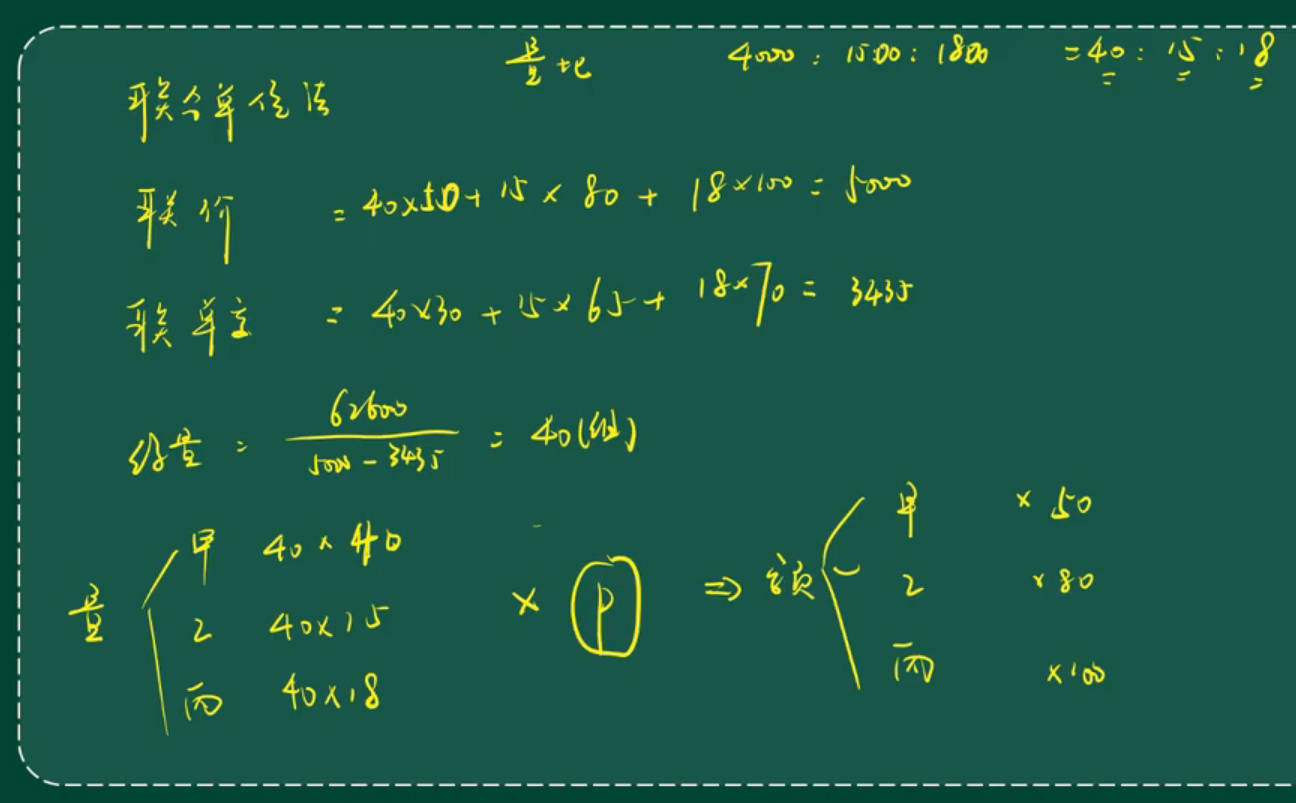 量比 4000 : 1500 : 1800 = 40 : 15 : 18
联合单位法
联价 = 40×50 + 15 × 80 + 18×100 = 5000
联单变 = 40×30 + 15×65 + 18×70 = 3435
组量 = 62600 / 5000 - 3435 = 40(组)
量 甲 40×40 × P ⇒ 额 甲 ×50
乙 40×15 乙 ×80
丙 40×18 丙 ×100